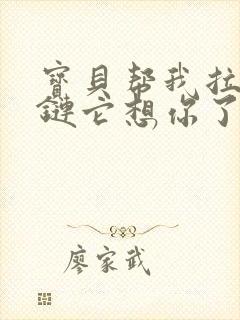 寶貝幫我拉
鏈它想你了
廖家武